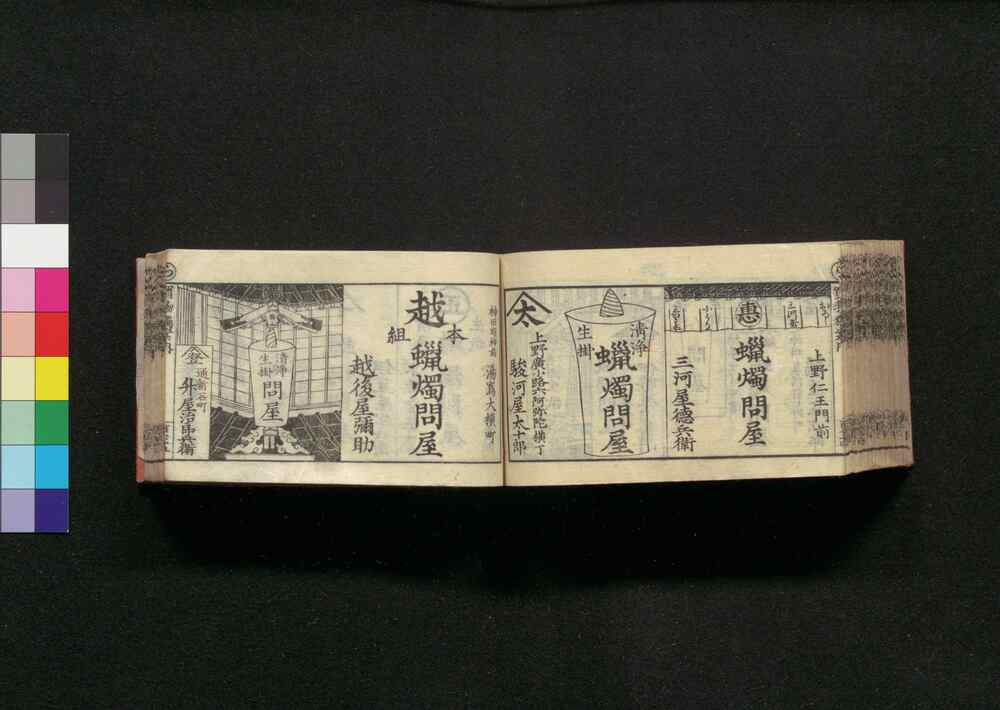 上野仁王門前
惠
蠟燭問屋
三河屋德兵衛
清浄
生掛
蠟燭問屋
太
上野廣小路六阿弥陀横丁
駿河屋太十郎
神田明神前
湯嶌大横町
本
越
組
蠟燭問屋
越後屋彌助
清浄
生掛
問屋
通新石町
升屋治郎兵衛